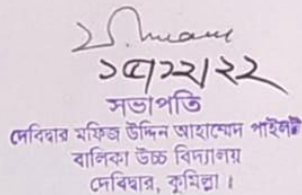 সভাপতি
দেবিদ্বার মফিজ উদ্দিন আহাম্মেদ পাইলট
বালিকা উচ্চ বিদ্যালয়
দেবিদ্বার, কুমিল্লা।